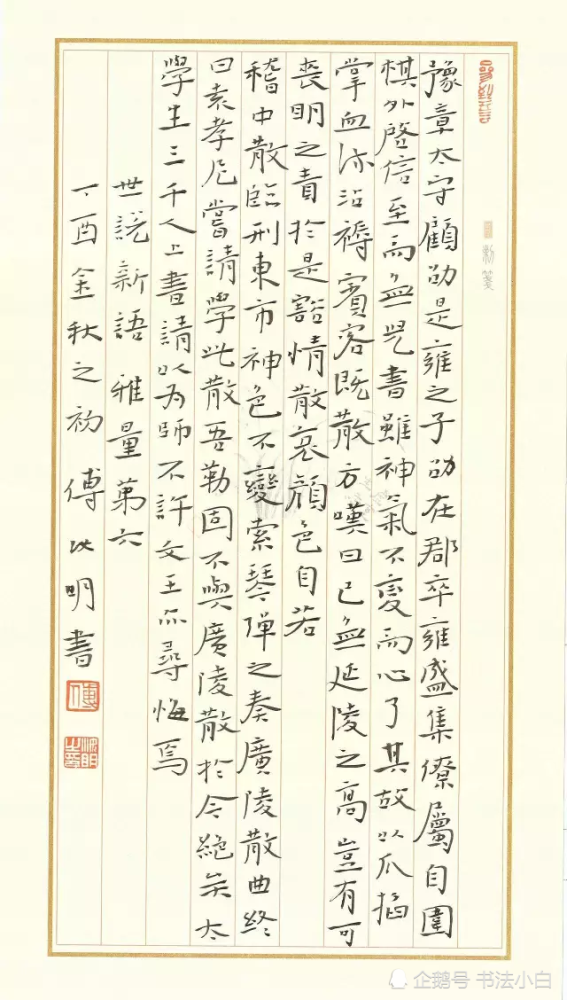 豫章太守顧劭是雍之子劭在郡卒雍盛集僚屬自圍
棋外啓信至而無兒書雖神氣不變而心了其故以爪掐
掌血流沾褥賓客既散方嘆曰已無延陵之高豈有可
喪明之責於是豁情散哀顔色自若
嵇中散臨刑東市神色不變索琴彈之奏廣陵散曲終
曰袁孝尼嘗請學此散吾靳固不與廣陵散於今絶矣太
學生三千人上書請以為師不許文王亦尋悔焉
世説新語 雅量第六
丁酉金秋之初 傅 明書
企鹅号 书法小白